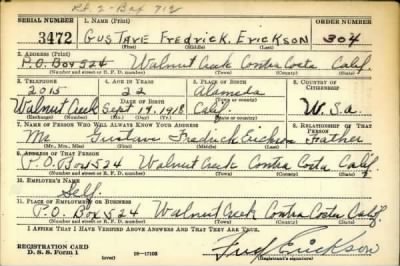 Rt. 2 - Box 712
SERIAL NUMBER 1. NAME (Print) ORDER NUMBER
3472 GUSTAVE FREDRICK, ERICKSON 304
(First) (Middle) (Last)
2. ADDRESS (Print)
P.O. Box 524 Walnut Creek Contra Costa Calif.
(Number and street or R. F. D. number) (Town) (County) (State)
3. TELEPHONE 4. AGE IN YEARS 5. PLACE OF BIRTH 6. COUNTRY OF CITIZENSHIP
2015 22 Alameda
DATE OF BIRTH (Town or county)
Walnut Creek Sept 19, 1918 Calif. U.S.a
(Exchange) (Number) (Mo.) (Day) (Yr.) (State or country)
7. NAME OF PERSON WHO WILL ALWAYS KNOW YOUR ADDRESS 8. RELATIONSHIP OF THAT PERSON
Mr. Gustave Fredrick Erickson Father
(Mr., Mrs., Miss) (First) (Middle) (Last)
9. ADDRESS OF THAT PERSON
P.O. Box 524 Walnut Creek Contra Costa Calif
(Number and street or R. F. D. number) (Town) (County) (State)
10. EMPLOYER'S NAME
Self.
11. PLACE OF EMPLOYMENT OR BUSINESS
P.O. Box 524 Walnut Creek Contra Costa Calif.
(Number and street or R. F. D. number) (Town) (County) (State)
I AFFIRM THAT I HAVE VERIFIED ABOVE ANSWERS AND THAT THEY ARE TRUE.
REGISTRATION CARD
D. S. S. Form 1 16-17105 Fred Erickson
(Registrant's signature)